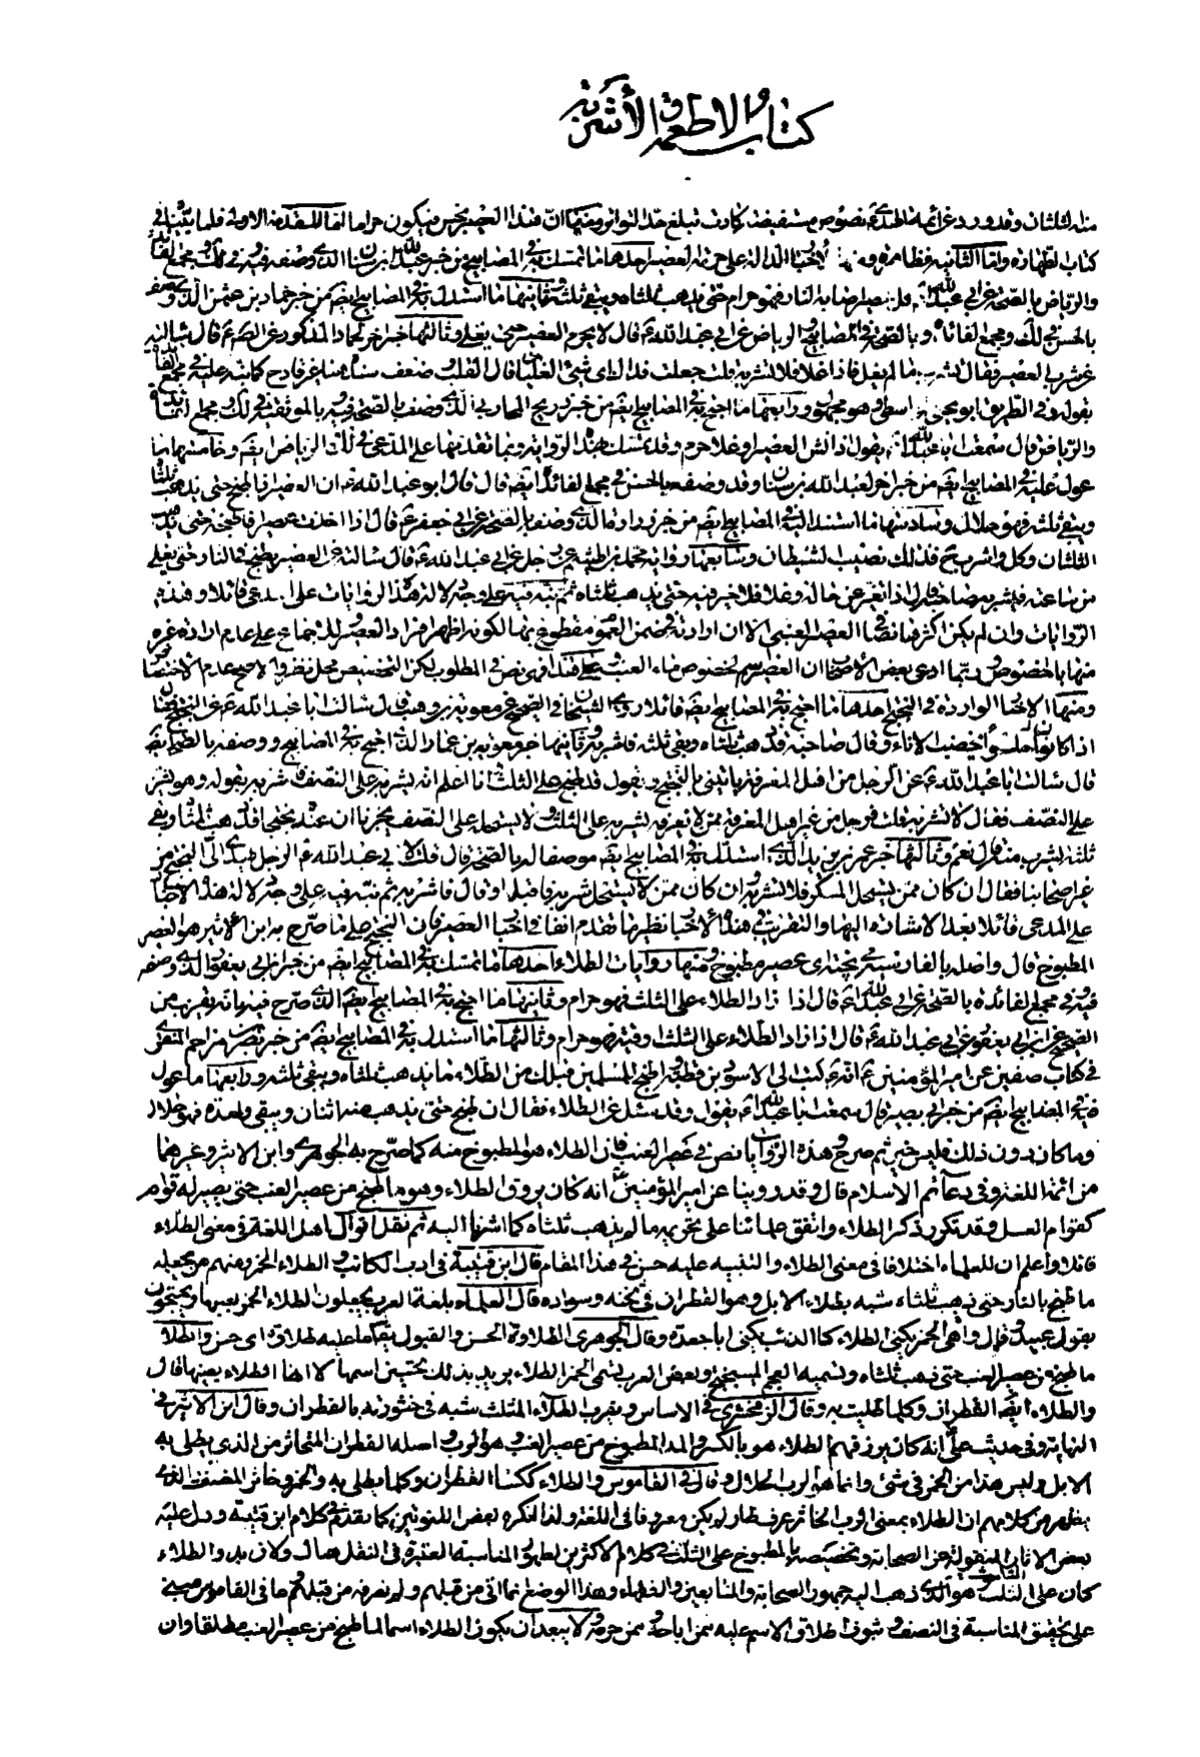 كتاب الاطعمة والأشربة
منه الثلثان وقد ورد عن ائمة الهدى ع نصوص مستفيضة كادت تبلغ حد التواتر ومنها ان هذا العصير نجس فيكون حراما اما المقدمة الاولى فلما بيناه في
كتاب الطهارة واما الثانية فظاهرة ومنها الاخبار الدالة على حرمة العصير احدها ما تمسك به في المصابيح من خبر عبد الله بن سنان الذي وصفه فيه وفي ذلك ومجمع الفائدة
والرياض بالصحة عن ابي عبد الله ع قال كل عصير اصابته النار فهو حرام حتى يذهب ثلثاه ويبقى ثلثه وثانيها ما استدل به في المصابيح ايضا من خبر حماد بن عثمن الذي وصفه
بالحسن في لك ومجمع الفائدة وبالصحة في المصابيح والرياض عن ابي عبد الله ع قال لا يحرم العصير حتى يغلى وثالثها خبر اخر لحماد المذكور عن الص ع قال سالته
عن شرب العصير فقال اشرب ما لم يغل فاذا غلا فلا تشربه قلت جعلت فداك اى شئ الغليان قال القلب وضعف سنده هنا غير قادح كما نبه عليه في مجمع الفائدة
بقوله وفي الطريق ابو يحيى الواسطى وهو مجهول ورابعها ما احتج به في المصابيح ايضا من خبر ذريح المحاربى الذي وصف بالصحة فيه وبالموثقة في لك ومجمع الفائدة
والرياض قال سمعت ابا عبد الله ع يقول اذا نش العصير او غلا حرم وقد تمسك بهذه الرواية وبما تقدمها على المدعى في لك والرياض ايضا وخامسها ما
عول عليه في المصابيح ايضا من خبر اخر لعبد الله بن سنان وقد وصفه بالحسن في مجمع الفائدة ايضا قال قال ابو عبد الله ع ان العصير اذا طبخ حتى يذهب ثلثاه
ويبقى ثلثه فهو حلال وسادسها ما استند اليه في المصابيح ايضا من خبر
الثلثان وكل واشرب فذلك نصيب الشيطان وسابعها رواية محمد بن الهيثم عن رجل عن ابي عبد الله ع قال سالته عن العصير يطبخ بالنار حتى يغلى
من ساعته فيشربه صاحبه قال اذا تغير عن حاله وغلا فلا خير فيه حتى يذهب ثلثاه ثم نبه فيه على وجه دلالة هذه الروايات على المدعى قائلا وهذه
الروايات وان لم يكن اكثرها نصا في العصير العنبى الا ان ارادته في ضمن العموم مقطوع بها لكونه اظهر افراد العصير للاجماع على عدم ارادة غيره
منها بالخصوص وربما ادعى بعض الاصحاب ان العصير اسم لخصوص ماء العنب وعلى هذا فهى نص في المطلوب لكن التخصيص محل نظر والاصح عدم الاختصاص
ومنها الاخبار الواردة في البختج احدها ما احتج به في المصابيح ايضا قائلا روى الشيخان في الصحيح عن معوية بن وهب قال سالت ابا عبد الله ع عن البختج فقال
اذا كان حلوا يخضب الاناء وقال صاحبه قد ذهب ثلثاه وبقى ثلثه فاشربه وثانيها خبر معوية بن عمار الذي احتج به في المصابيح ووصفه بالصحة ايضا
قال سالت ابا عبد الله ع عن الرجل من اهل المعرفة ياتينى بالبختج ويقول قد طبخ على الثلث وانا اعلم انه يشربه على النصف اشربه بقوله وهو يشربه
على النصف فقال لا تشربه قلت فرجل من غير اهل المعرفة ممن لا نعرفه يشربه على الثلث ولا يستحله على النصف يخبرنا ان عنده بختجا قد ذهب ثلثاه وبقى
ثلثه يشرب منه قال نعم وثالثها خبر عمر بن يزيد الذي استدل به في المصابيح ايضا موصفا له بالصحة قال قلت لابي عبد الله ع الرجل يهدى الى البختج من
غير اصحابنا فقال ان كان ممن يستحل المسكر فلا تشربه وان كان ممن لا يستحل شربه فاقبله او قال فاشربه ثم نبه فيه على وجه دلالة هذه الاخبار
على المدعى قائلا بعد الاشارة اليها والتقريب في هذه الاخبار نظير ما تقدم انفا في اخبار العصير فان البختج على ما صرح به ابن الاثير هو العصير
المطبوخ قال واصله بالفارسية مى پخته اى عصير مطبوخ ومنها روايات الطلاء احدها ما تمسك به في المصابيح ايضا من خبر ابن ابي يعفور الذي وصفه
فيه وفي مجمع الفائدة بالصحة عن ابي عبد الله ع قال اذا زاد الطلاء على الثلث فهو حرام وثانيها ما احتج به في المصابيح ايضا الذي صرح فيها
الصحيح عن ابن ابي يعفور عن ابي عبد الله ع قال اذا زاد الطلاء على الثلث وقية فهو حرام وثالثها ما استدل به في المصابيح ايضا من خبر نصر بن مزاحم المنقرى
في كتاب صفين عن امير المؤمنين ع انه كتب الى الاسود بن قطبة واطبخ للمسلمين قبلك من الطلاء ما يذهب ثلثاه ويبقى ثلثه ورابعها ما عول
في المصابيح ايضا من خبر ابي بصير قال سمعت ابا عبد الله ع يقول وقد سئل عن الطلاء فقال ان طبخ حتى يذهب منه اثنان ويبقى واحد فهو حلال
وما كان دون ذلك فليس فيه خير ثم صرح وهذه الروايات نص في عصير العنب فان الطلاء هو المطبوخ منه كما صرح به الجوهرى وابن الاثير وغيرهما
من ائمة اللغة وفى دعائم الاسلام قال وقد روينا عن امير المؤمنين ع انه كان يروق الطلاء وهو ما طبخ من عصير العنب حتى يصير له قوام
كقوام العسل وقد تكرر ذكر الطلاء واتفق علمائنا على تحريمه ما لم يذهب ثلثاه كما اشرنا اليه ثم نقل اقوال اهل اللغة في معنى الطلاء
قائلا واعلم ان للعلماء اختلافا في معنى الطلاء والتنبيه عليه حسن في هذا المقام قال ابن قتيبة في ادب الكاتب الطلاء الخمر ومنهم من يجعله
ما طبخ بالنار حتى ذهب ثلثاه شبه بطلاء الابل وهو القطران في ثخنه وسواده قال العلماء بلغة العرب يجعلون الطلاء الخمر بعينها ويحتجون
بقول عبيد وقال هى الخمر يكنى الطلاء كما الذئب يكنى ابا جعدة وقال الجوهرى الطلاوة الحسن والقبول يقال ما عليه طلاوة اى حسن والطلا
ما طبخ من عصير العنب حتى ذهب ثلثاه وتسميه العجم الميبختج وبعض العرب يسمى الخمر الطلاء يريد بذلك تحسين اسمها لا انها الطلاء بعينها قال
والطلاء ايضا القطران وكلما طليت به وقال الزمخشرى في الاساس وشرب الطلاء المثلث شبه في خثورته بالقطران وقال ابن الاثير في
النهاية وفى حديث على ع انه كان يرزقهم الطلاء هو بالكسر والمد المطبوخ من عصير العنب وهو الرب واصله القطران الخاثر من الذى يطلى به
الابل وليس هذا من الخمر في شئ وانما هو الرب الحلال وقال في القاموس والطلاء ككساء القطران وكلما يطلى به والخمر وخاثر المنصف الذى
يظهر من كلامهم ان الطلاء بمعنى الرب الخاثر عرف طار لم يكن معروفا في اللغة ولذا انكره بعض اللغويين كما تقدم في كلام ابن قتيبة ودل عليه
بعض الاثار المنقولة عن الصحابة وتخصيصه بالمطبوخ على الثلث في كلام الاكثرين لظهور المناسبة المعتبرة في النقل هناك ولان
كان على الثلث هو الذى ذهب اليه جمهور الصحابة والتابعين والفقهاء وهذا الوضع انما اتى من قبلهم ولم نعرفه من قبلهم وما في القاموس مبنى
على تحقق المناسبة في النصف وثبوت اطلاق الاسم عليه ممن اباحه وممن حرمه ولا يبعد ان يكون الطلاء اسما لما طبخ من عصير العنب مطلقا وان